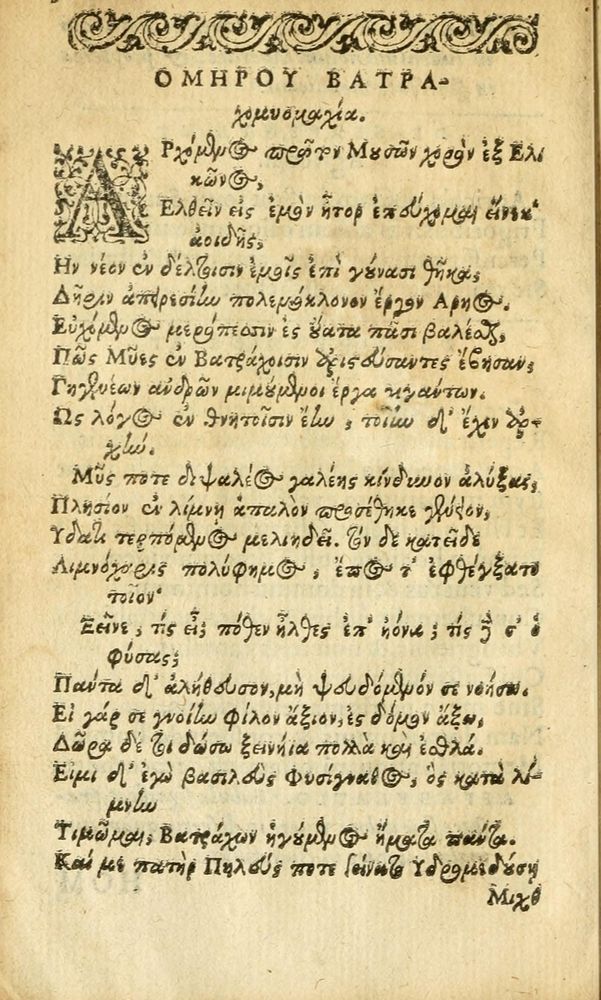 ΟΜΗΡΟΥ ΒΑΤΡΑ-
χομυομαχία.
ΑΡχόμενος πρῶτον Μουσῶν χορὸν ἐξ Ελι
κῶνος,
Ελθεῖν εἰς ἐμὸν ἦτορ ἐπεύχομαι εἵνεκ'
ἀοιδῆς,
Ην νέον ἐν δέλτοισιν ἐμοῖς ἐπὶ γούνασι θῆκα,
Δῆριν ἀπειρεσίην πολεμόκλονον ἔργον Αρηος.
Εὐχόμενος μερόπεσσιν ἐς ὔατα πᾶσι βαλέσθαι,
Πῶς Μῦες ἐν Βατράχοισιν ἀριστεύσαντες ἔβησαν,
Γηγενέων ἀνδρῶν μιμούμενοι ἔργα γιγάντων.
Ως λόγος ἐν θνητοῖσιν ἔην, τοίην δ' ἔχεν ἀρ-
χήν.
Μῦς ποτε διψαλέος γαλέης κίνδυνον ἀλύξας,
Πλησίον ἐν λίμνῃ ἁπαλὸν προσέθηκε γένειον,
Υδατι τερπόμενος μελιηδεῖ. τὸν δὲ κατεῖδε
Λιμνόχαρις πολύφημος, ἔπος τ' ἐφθέγξατο
τοῖον·
Ξεῖνε, τίς εἶ; πόθεν ἦλθες ἐπ' ἠόνα; τίς δέ σ' ὁ
φύσας;
Παντα δ' ἀλήθευσον, μὴ ψευδόμενόν σε νοήσω.
Εἰ γάρ σε γνοίην φίλον ἄξιον, ἐς δόμον ἄξω,
Δῶρα δέ τοι δώσω ξεινήϊα πολλὰ καὶ ἐσθλά.
Εἰμι δ' ἐγὼ βασιλεὺς Φυσίγναθος, ὃς κατὰ λί-
μνην
Τιμῶμαι, Βατράχων ἡγούμενος ἤματα πάντα.
Καί με πατὴρ Πηλεύς ποτε γείνατο Υδρομεδούσῃ
Μιχθ